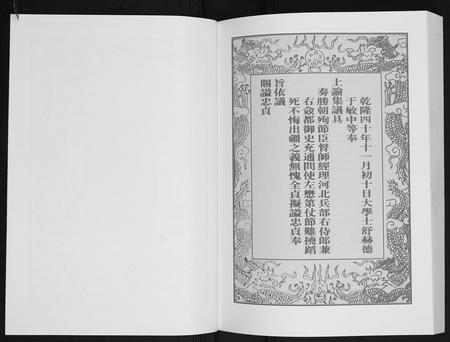 乾隆四十年十一月初十日大學士舒赫德
于敏中等奉
上諭集議具
奏勝朝殉節臣督師經理河北兵部右侍郎兼
右僉都御史充通問使左懋第仗節難撓蹈
死不悔出疆之義無愧全貞擬謚忠貞奉
旨依議
賜謚忠貞